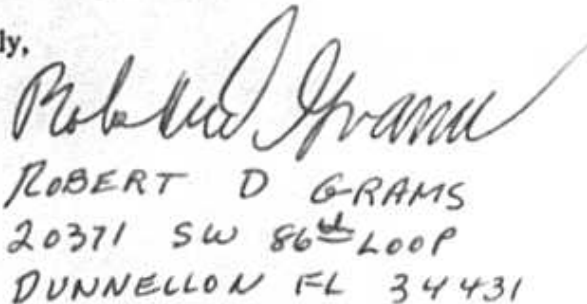 ly,
Robert D Grams
ROBERT D GRAMS
20371 SW 86th LOOP
DUNNELLON FL 34431